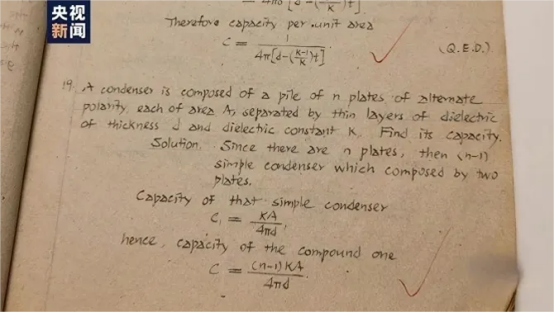 央视
新闻
Therefore capacity per unit area
C = 1 / 4π[d-((K-1)/K)t]
(Q.E.D.)
19. A condenser is composed of a pile of n plates of alternate
polarity, each of area A, separated by thin layers of dielectric
of thickness d and dielectric constant K. Find its capacity.
Solution. Since there are n plates, then (n-1)
simple condenser which composed by two
plates.
Capacity of that simple condenser
C₁ = KA / 4πd,
hence, capacity of the compound one
C = (n-1)KA / 4πd